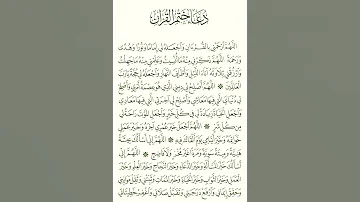 دعاء ختم القرآن
اللهم ارحمني بالقرءان واجعله لي إماما ونورا وهدى
ورحمة اللهم ذكرني منه ما نسيت وعلمني منه ما جهلت
وارزقني تلاوته آناء الليل وأطراف النهار واجعله لي حجة يارب
العالمين اللهم أصلح لي ديني الذي هو عصمة أمري وأصلح
لي دنياي التي فيها معاشي وأصلح لي آخرتي التي فيها معادي
واجعل الحياة زيادة لي في كل خير واجعل الموت راحة لي
من كل شر اللهم اجعل خير عمري آخره وخير عملي
خواتمه وخير أيامي يوم ألقاك فيه اللهم إني أسألك عيشة
هنية وميتة سوية ومردا غير مخز ولا فاضح اللهم إني
أسألك خير المسألة وخير الدعاء وخير النجاح وخير العلم وخير
العمل وخير الثواب وخير الحياة وخير الممات وثبتني وثقل موازيني
وحقق إيماني وارفع درجتي وتقبل صلاتي واغفر خطيئاتي